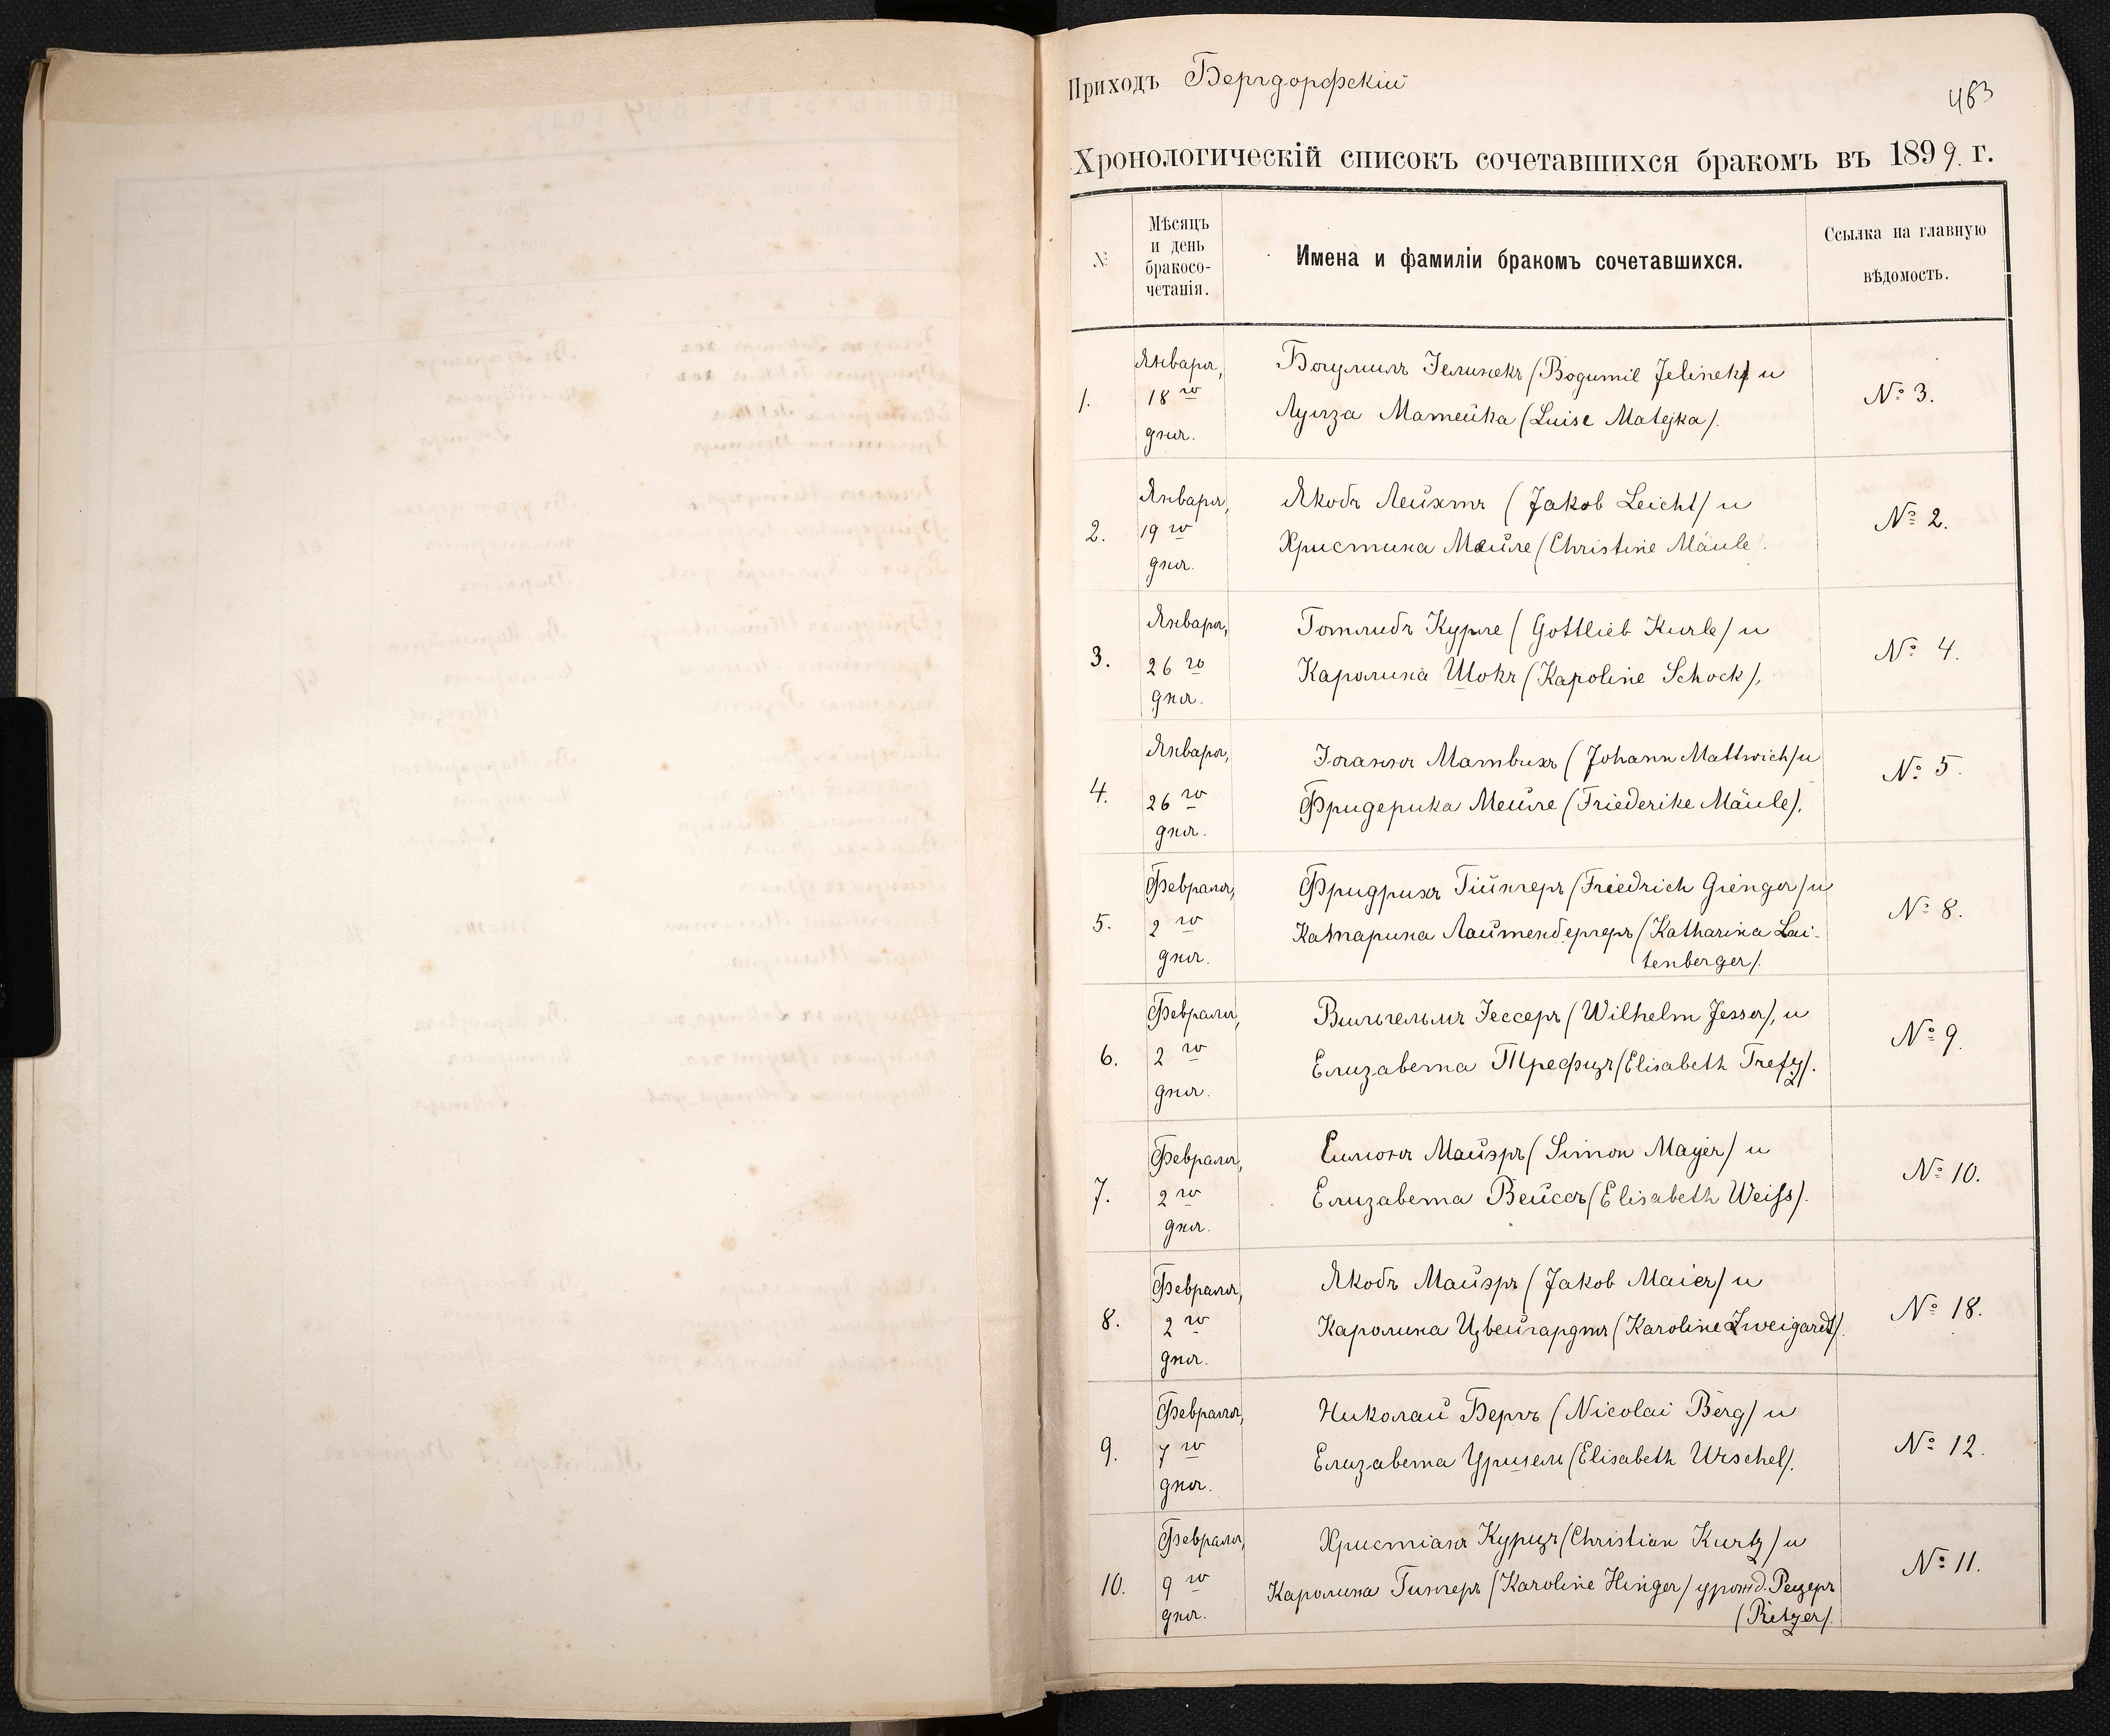 Приходъ Бергдорфскій
463
Хронологическій списокъ сочетавшихся бракомъ въ 1899. г.
№
Мѣсяцъ
и день
бракосо-
четанія.
Имена и фамиліи бракомъ сочетавшихся.
Ссылка на главную
вѣдомость.
1.
Января,
18 го
дня.
Богумилъ Іелинекъ (Bogumil Jelinek) и
Луиза Матейка (Luise Matejka).
№ 3.
2.
Января,
19 го
дня.
Якобъ Лейхтъ (Jakob Leicht) и
Христина Мейле (Christine Mäule).
№ 2.
3.
Января,
26 го
дня.
Готлибъ Курле (Gottlieb Kurle) и
Каролина Шокъ (Karoline Schock),
№ 4.
4.
Января,
26 го
дня.
Іоганнъ Матвихъ (Johann Mattwich) и
Фридерика Мейле (Friederike Mäule).
№ 5.
5.
Февраля,
2 го
дня.
Фридрихъ Гіингеръ (Friedrich Gienger) и
Катарина Лайтенбергеръ (Katharina Lai-
tenberger).
№ 8.
6.
Февраля,
2 го
дня.
Вильгельмъ Іессеръ (Wilhelm Jesser), и
Елизавета Трефцъ (Elisabeth Trefz).
№ 9.
7.
Февраля,
2 го
дня.
Симонъ Майэръ (Simon Mayer) и
Елизавета Вейссъ (Elisabeth Weiss).
№ 10.
8.
Февраля,
2 го
дня.
Якобъ Майэръ (Jakob Maier) и
Каролина Цвейгардтъ (Karoline Zweigardt).
№ 18.
9.
Февраля,
7 го
дня.
Николай Бергъ (Nicolai Berg) и
Елизавета Уршель (Elisabeth Urschel).
№ 12.
10.
Февраля,
9 го
дня.
Христіанъ Курцъ (Christian Kurtz) и
Каролина Гингеръ (Karoline Hinger) урожд. Рецеръ
(Retzer).
№ 11.